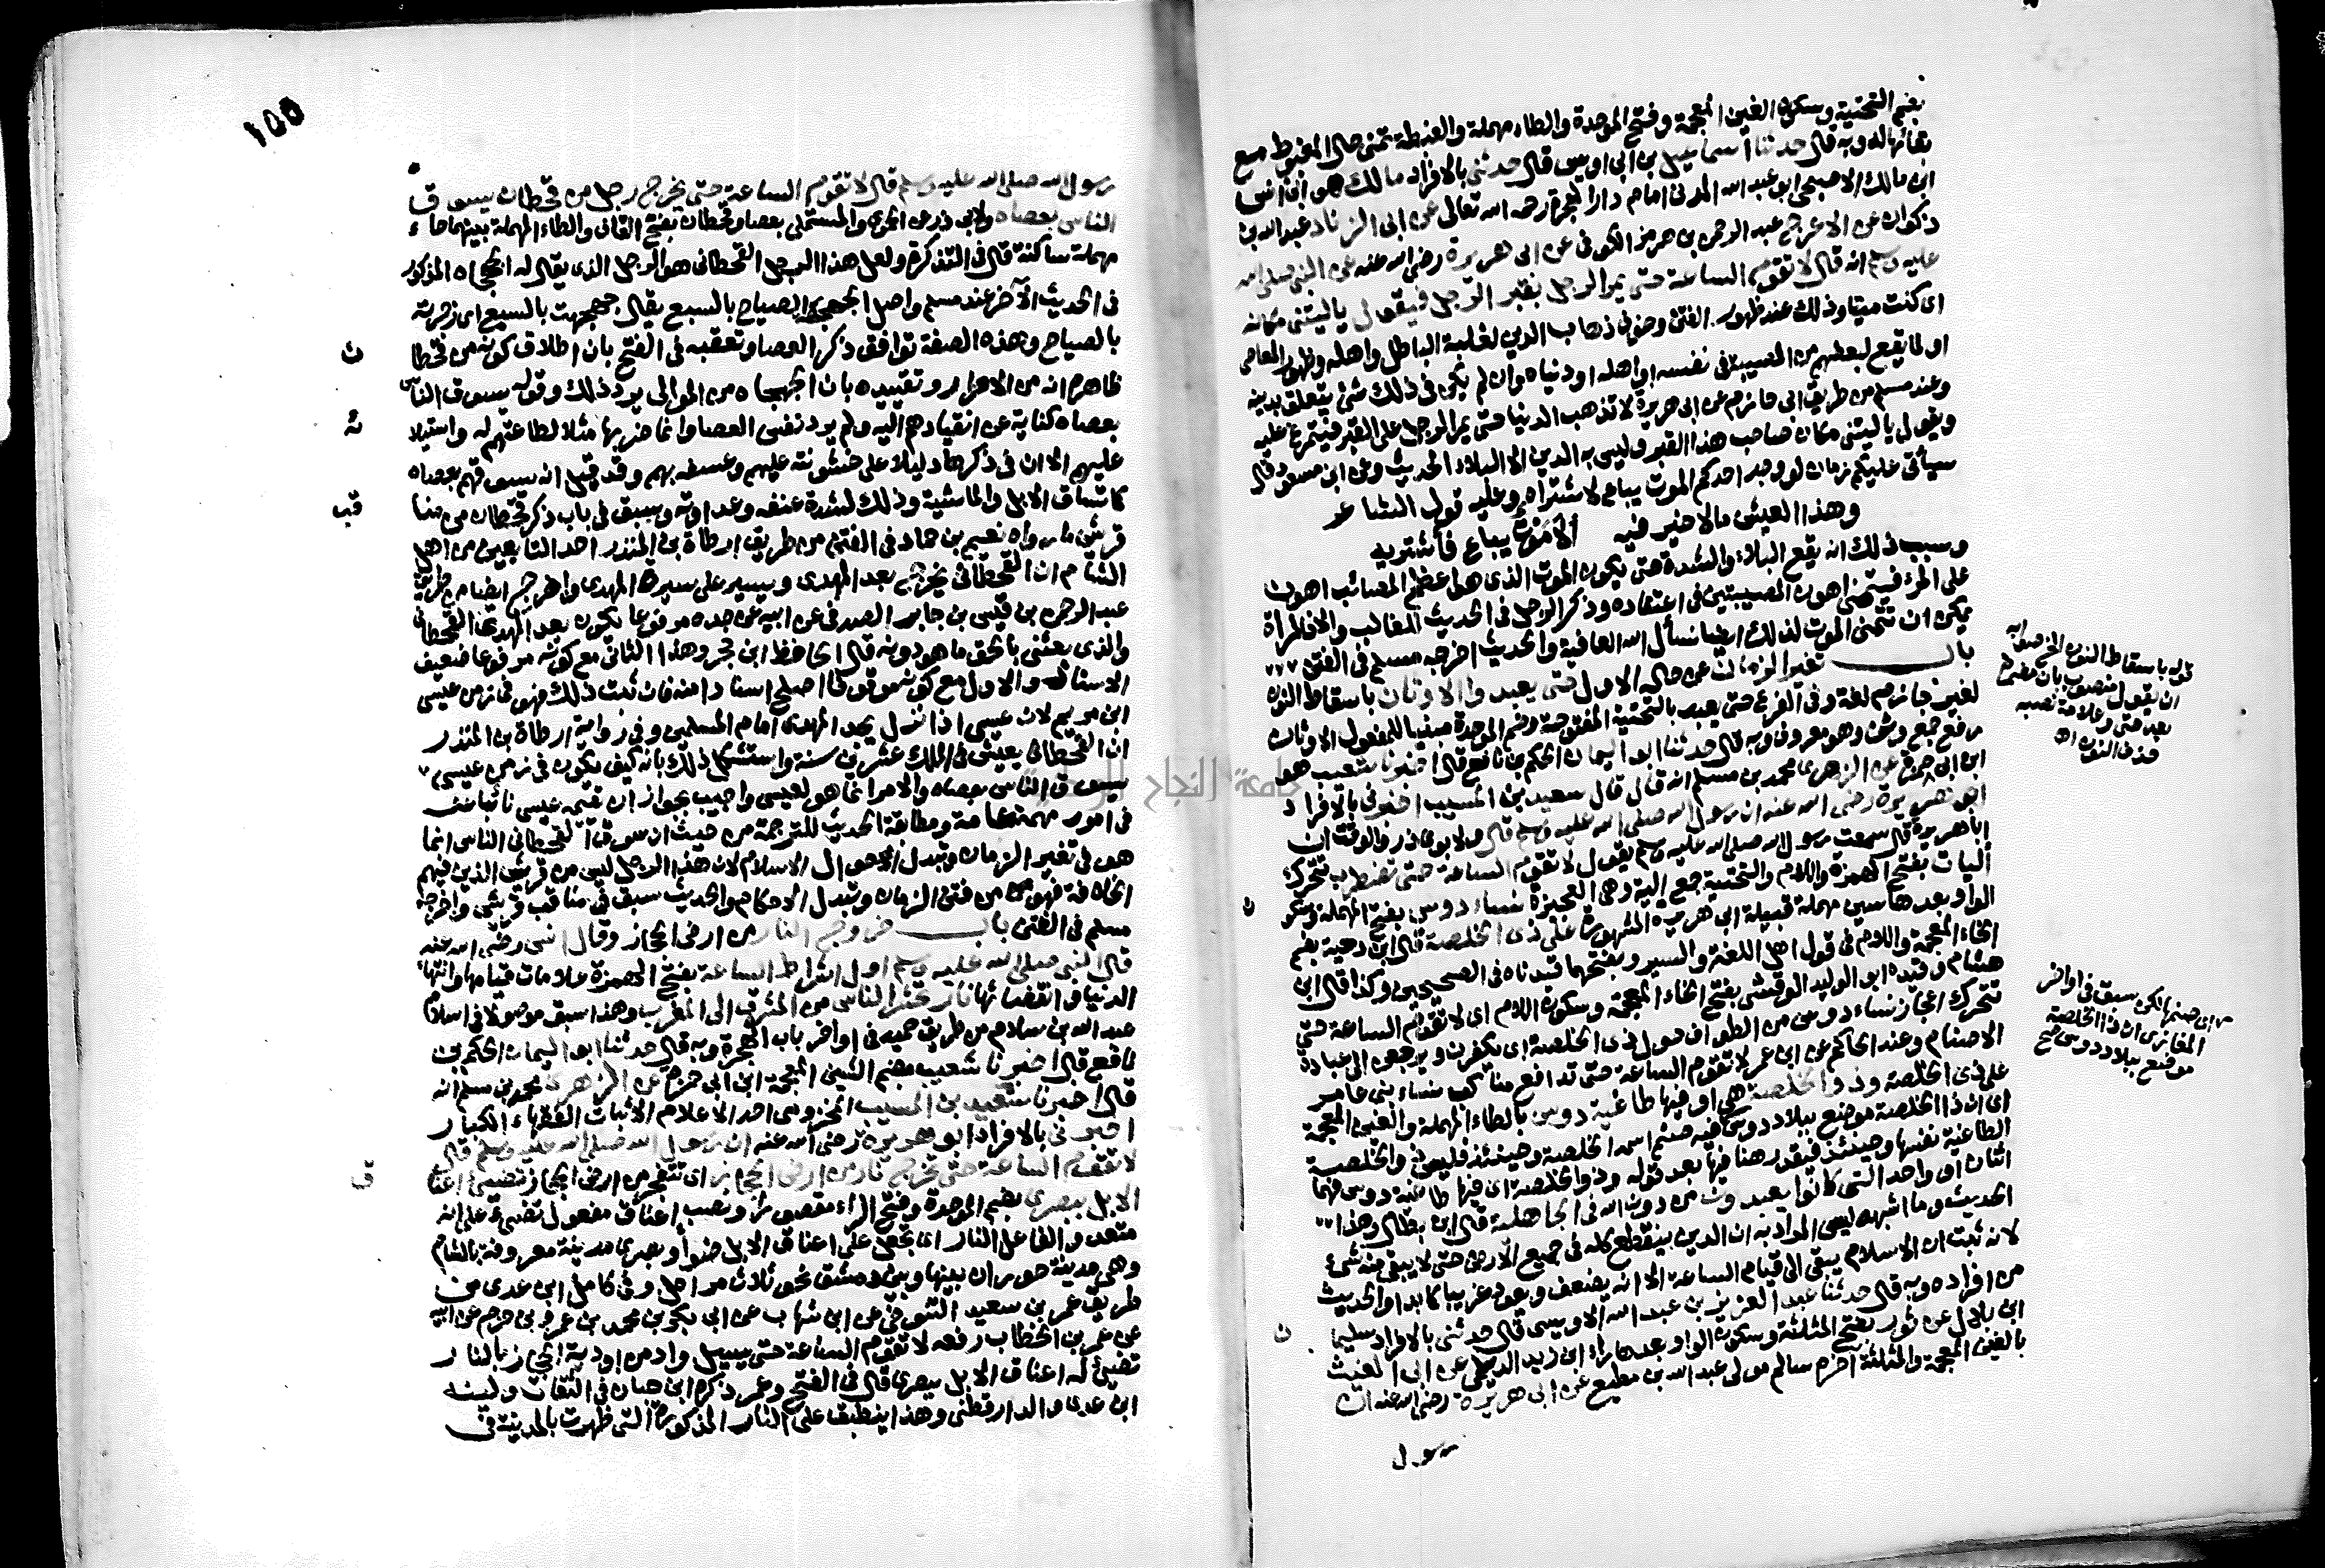 بضم التحتية وسكون الغين المعجمة وفتح الموحدة والطاء مهملة والغبطة تمنى حال المغبوط مع
بقائها له وبه قال حدثنا اسماعيل بن ابى اويس قال حدثنى بالافراد مالك هو ابن انس
ابن مالك الاصبحى ابو عبد الله المدنى امام دار الهجرة رحمه الله تعالى عن ابى الزناد عبد الله بن
ذكوان عن الاعرج عبد الرحمن بن هرمز الكوفى عن ابى هريرة رضى الله عنه عن النبى صلى الله
عليه وسلم انه قال لا تقوم الساعة حتى يمر الرجل بقبر الرجل فيقول يا ليتنى مكانه
اى كنت ميتا وذلك عند ظهور الفتن وخوف ذهاب الدين لغلبة الباطل واهله وظهور المعاصى
او لما يقع لبعضهم من المصيبة فى نفسه او اهله او دنياه وان لم يكن فى ذلك شئ يتعلق بدينه
وعند مسلم من طريق ابى حازم عن ابى هريرة لا تذهب الدنيا حتى يمر الرجل على القبر فيتمرغ عليه
ويقول يا ليتنى مكان صاحب هذا القبر وليس به الدين الا البلاء الحديث وعن ابن مسعود قال
سيأتى عليكم زمان لو وجد احدكم الموت يباع لاشتراه وعليه قول الشاعر
وهذا العيش مالا خير فيه الا موت يباع فأشتريه
وسبب ذلك انه يقع البلاء والشدة حتى يكون الموت الذى هو اعظم المصائب اهون
على المرء فيتمنى اهون المصيبتين فى اعتقاده وذكر الرجل فى الحديث للغالب والا فالمرأة
يمكن ان تتمنى الموت لذلك ايضا نسأل الله العافية والحديث اخرجه مسلم فى الفتن
باب تغير الزمان عن حاله الاول حتى يعبدوا الاوثان باسقاط النون
لغير جازم لغة وفى الفرع حتى يعبد بالتحتية المفتوحة وضم الموحدة مبنيا للمفعول الاوثان
رفع جمع وثن وهو معروف وبه قال حدثنا ابو اليمان الحكم بن نافع قال اخبرنا شعيب هو
ابن ابى حمزة عن الزهرى محمد بن مسلم انه قال قال سعيد بن المسيب اخبرنى بالافراد
ابو هريرة رضى الله عنه ان رسول الله صلى الله عليه وسلم قال ولابوى ذر والوقت ان
اباهريرة قال سمعت رسول الله صلى الله عليه وسلم يقول لا تقوم الساعة حتى تضطرب تتحرك
اليات بفتح الهمزة واللام والتحتية جمع الية وهى العجيزة نساء دوس بفتح المهملة وسكون
الواو بعدها سين مهملة قبيلة ابى هريرة المشهورة على ذى الخلصة قال ابن دحية بضم
الخاء المعجمة واللام فى قول اهل اللغة والسير وبفتحها قيدناه فى الصحيحين وكذا قال ابن
هشام وقيده ابو الوليد الوقشى بفتح الخاء المعجمة وسكون اللام اى لا تقوم الساعة حتى
تتحرك اعجاز نساء دوس من الطواف حول ذى الخلصة اى يكفرن ويرجعن الى عبادة
الاصنام وعند الحاكم عن ابن عمر لا تقوم الساعة حتى تدافع مناكب نساء بنى عامر
على ذى الخلصة وذو الخلصة هى او فيها طاغية دوس بالطاء المهملة والغين المعجمة
اى ان ذا الخلصة موضع ببلاد دوس فيه صنم اسمه الخلصة وحينئذ فليس ذو الخلصة
الطاغية نفسها وحينئذ فيقدر هنا فيها بعد قوله وذو الخلصة اى فيها طاغية دوس فهما
اثنان او واحد التى كانوا يعبدون من دون الله فى الجاهلية قال ابن بطال وهذا
الحديث وما اشبهه ليس المراد به ان الدين ينقطع كله فى جميع الارض حتى لا يبقى منه شئ
لانه ثبت ان الاسلام يبقى الى قيام الساعة الا انه يضعف ويعود غريبا كما بدا والحديث
من افراده وبه قال حدثنا عبد العزيز بن عبد الله الاويسى قال حدثنى بالافراد سليمان
ابن بلال عن ثور بفتح المثلثة وسكون الواو بعدها راء ابن زيد الديلى عن ابى الغيث
بالغين المعجمة والمثلثة اخره سالم مولى عبد الله بن مطيع عن ابى هريرة رضى الله عنه ان
رسول
قوله باسقاط النون الخ صوابه
ان يقول منصوب بان مضمرة
بعد حتى وعلامة نصبه
حذف النون اه
صنمها لكن سبق فى اواخر
المغازى ان ذا الخلصة
موضع ببلاد دوس صح
١٥٥
رسول الله صلى الله عليه وسلم قال لا تقوم الساعة حتى يخرج رجل من قحطان يسوق
الناس بعصاه ولابى ذر عن الحموى والمستملى بعصا وقحطان بفتح القاف والطاء المهملة بينهما حاء
مهملة ساكنة قال فى التذكرة ولعل هذا الرجل القحطانى هو الرجل الذى يقال له الجهجاه المذكور
فى الحديث الآخر عند مسلم واصل الجهجهة الصياح بالسبع يقال جهجهت بالسبع اى زجرته
بالصياح وهذه الصفة توافق ذكر العصا وتعقبه فى الفتح بان اطلاق كونه من قحطان
ظاهره انه من الاحرار وتقييده بان الجهجاه من الموالى يرد ذلك وقوله يسوق الناس
بعصاه كناية عن انقيادهم اليه ولم يرد نفس العصا وانما ضربها مثلا لطاعتهم له واستيلائه
عليهم الا ان فى ذكرها دليلا على خشونته عليهم وعسفه بهم وقد قيل انه يسوقهم بعصاه
كما تساق الابل والماشية وذلك لشدة عنفه وعداوته وسبق فى باب ذكر قحطان من مناقب
قريش ما رواه نعيم بن حماد فى الفتن من طريق ارطاة بن المنذر احد التابعين من اهل
الشام ان القحطانى يخرج بعد المهدى ويسير على سيرة المهدى واخرج ايضا من طريق
عبد الرحمن بن قيس بن جابر الصدفى عن ابيه عن جده مرفوعا يكون بعد المهدى القحطانى
والذى بعثنى بالحق ما هو دونه قال الحافظ ابن حجر وهذا الثانى مع كونه مرفوعا ضعيف
الاسناد والاول مع كونه موقوفا اصلح اسنادا منه فان ثبت ذلك فهو فى زمن عيسى
ابن مريم لان عيسى اذا نزل يجد المهدى امام المسلمين وفى رواية ارطاة بن المنذر
ان القحطانى يعيش فى الملك عشرين سنة واستشكل ذلك بانه كيف يكون فى زمن عيسى
يسوق الناس بعصاه والامر انما هو لعيسى واجيب بجواز ان يقيمه عيسى نائبا عنه
فى امور مهمة عامة ومطابقة الحديث للترجمة من حيث ان سوق القحطانى الناس انما
هو فى تغير الزمان وتبدل احوال الاسلام لان هذا الرجل ليس من قريش الذين فيهم
الخلافة فهو من فتن الزمان وتبدل الاحكام والحديث سبق فى مناقب قريش واخرجه
مسلم فى الفتن باب خروج النار من ارض الحجاز وقال انس رضى الله عنه
قال النبى صلى الله عليه وسلم اول اشراط الساعة بفتح الهمزة علامات قيامها وانتهاء
الدنيا وانقضائها نار تحشر الناس من المشرق الى المغرب وهذا سبق موصولا فى اسلام
عبد الله بن سلام من طريق حميد فى اواخر باب الهجرة وبه قال حدثنا ابو اليمان الحكم بن
نافع قال اخبرنا شعيب بضم الشين المعجمة ابن ابى حمزة عن الزهرى محمد بن مسلم انه
قال اخبرنا سعيد بن المسيب المخزومى احد الاعلام الاثبات الفقهاء الكبار
اخبرنى بالافراد ابو هريرة رضى الله عنه ان رسول الله صلى الله عليه وسلم قال
لا تقوم الساعة حتى تخرج نار من ارض الحجاز اى تتفجر من ارض الحجاز تضئ اعناق
الابل ببصرى بضم الموحدة وفتح الراء مقصورا ونصب اعناق مفعول تضئ على انه
متعد والفاعل النار اى تجعل على اعناق الابل ضوأ وبصرى مدينة معروفة بالشام
وهى مدينة حوران بينها وبين دمشق نحو ثلاث مراحل وفى كامل ابن عدى من
طريق عمر بن سعيد التنوخى عن ابن شهاب عن ابى بكر بن محمد بن عمرو بن حزم عن ابيه
عن عمر بن الخطاب رفعه لا تقوم الساعة حتى يسيل واد من اودية الحجاز بالنار
تضئ له اعناق الابل ببصرى قال فى الفتح وعمر ذكره ابن حبان فى الثقات ولينه
ابن عدى والدارقطنى وهذا ينطبق على النار المذكورة التى ظهرت بالمدينة فى
جامعة النجاح الوطنية